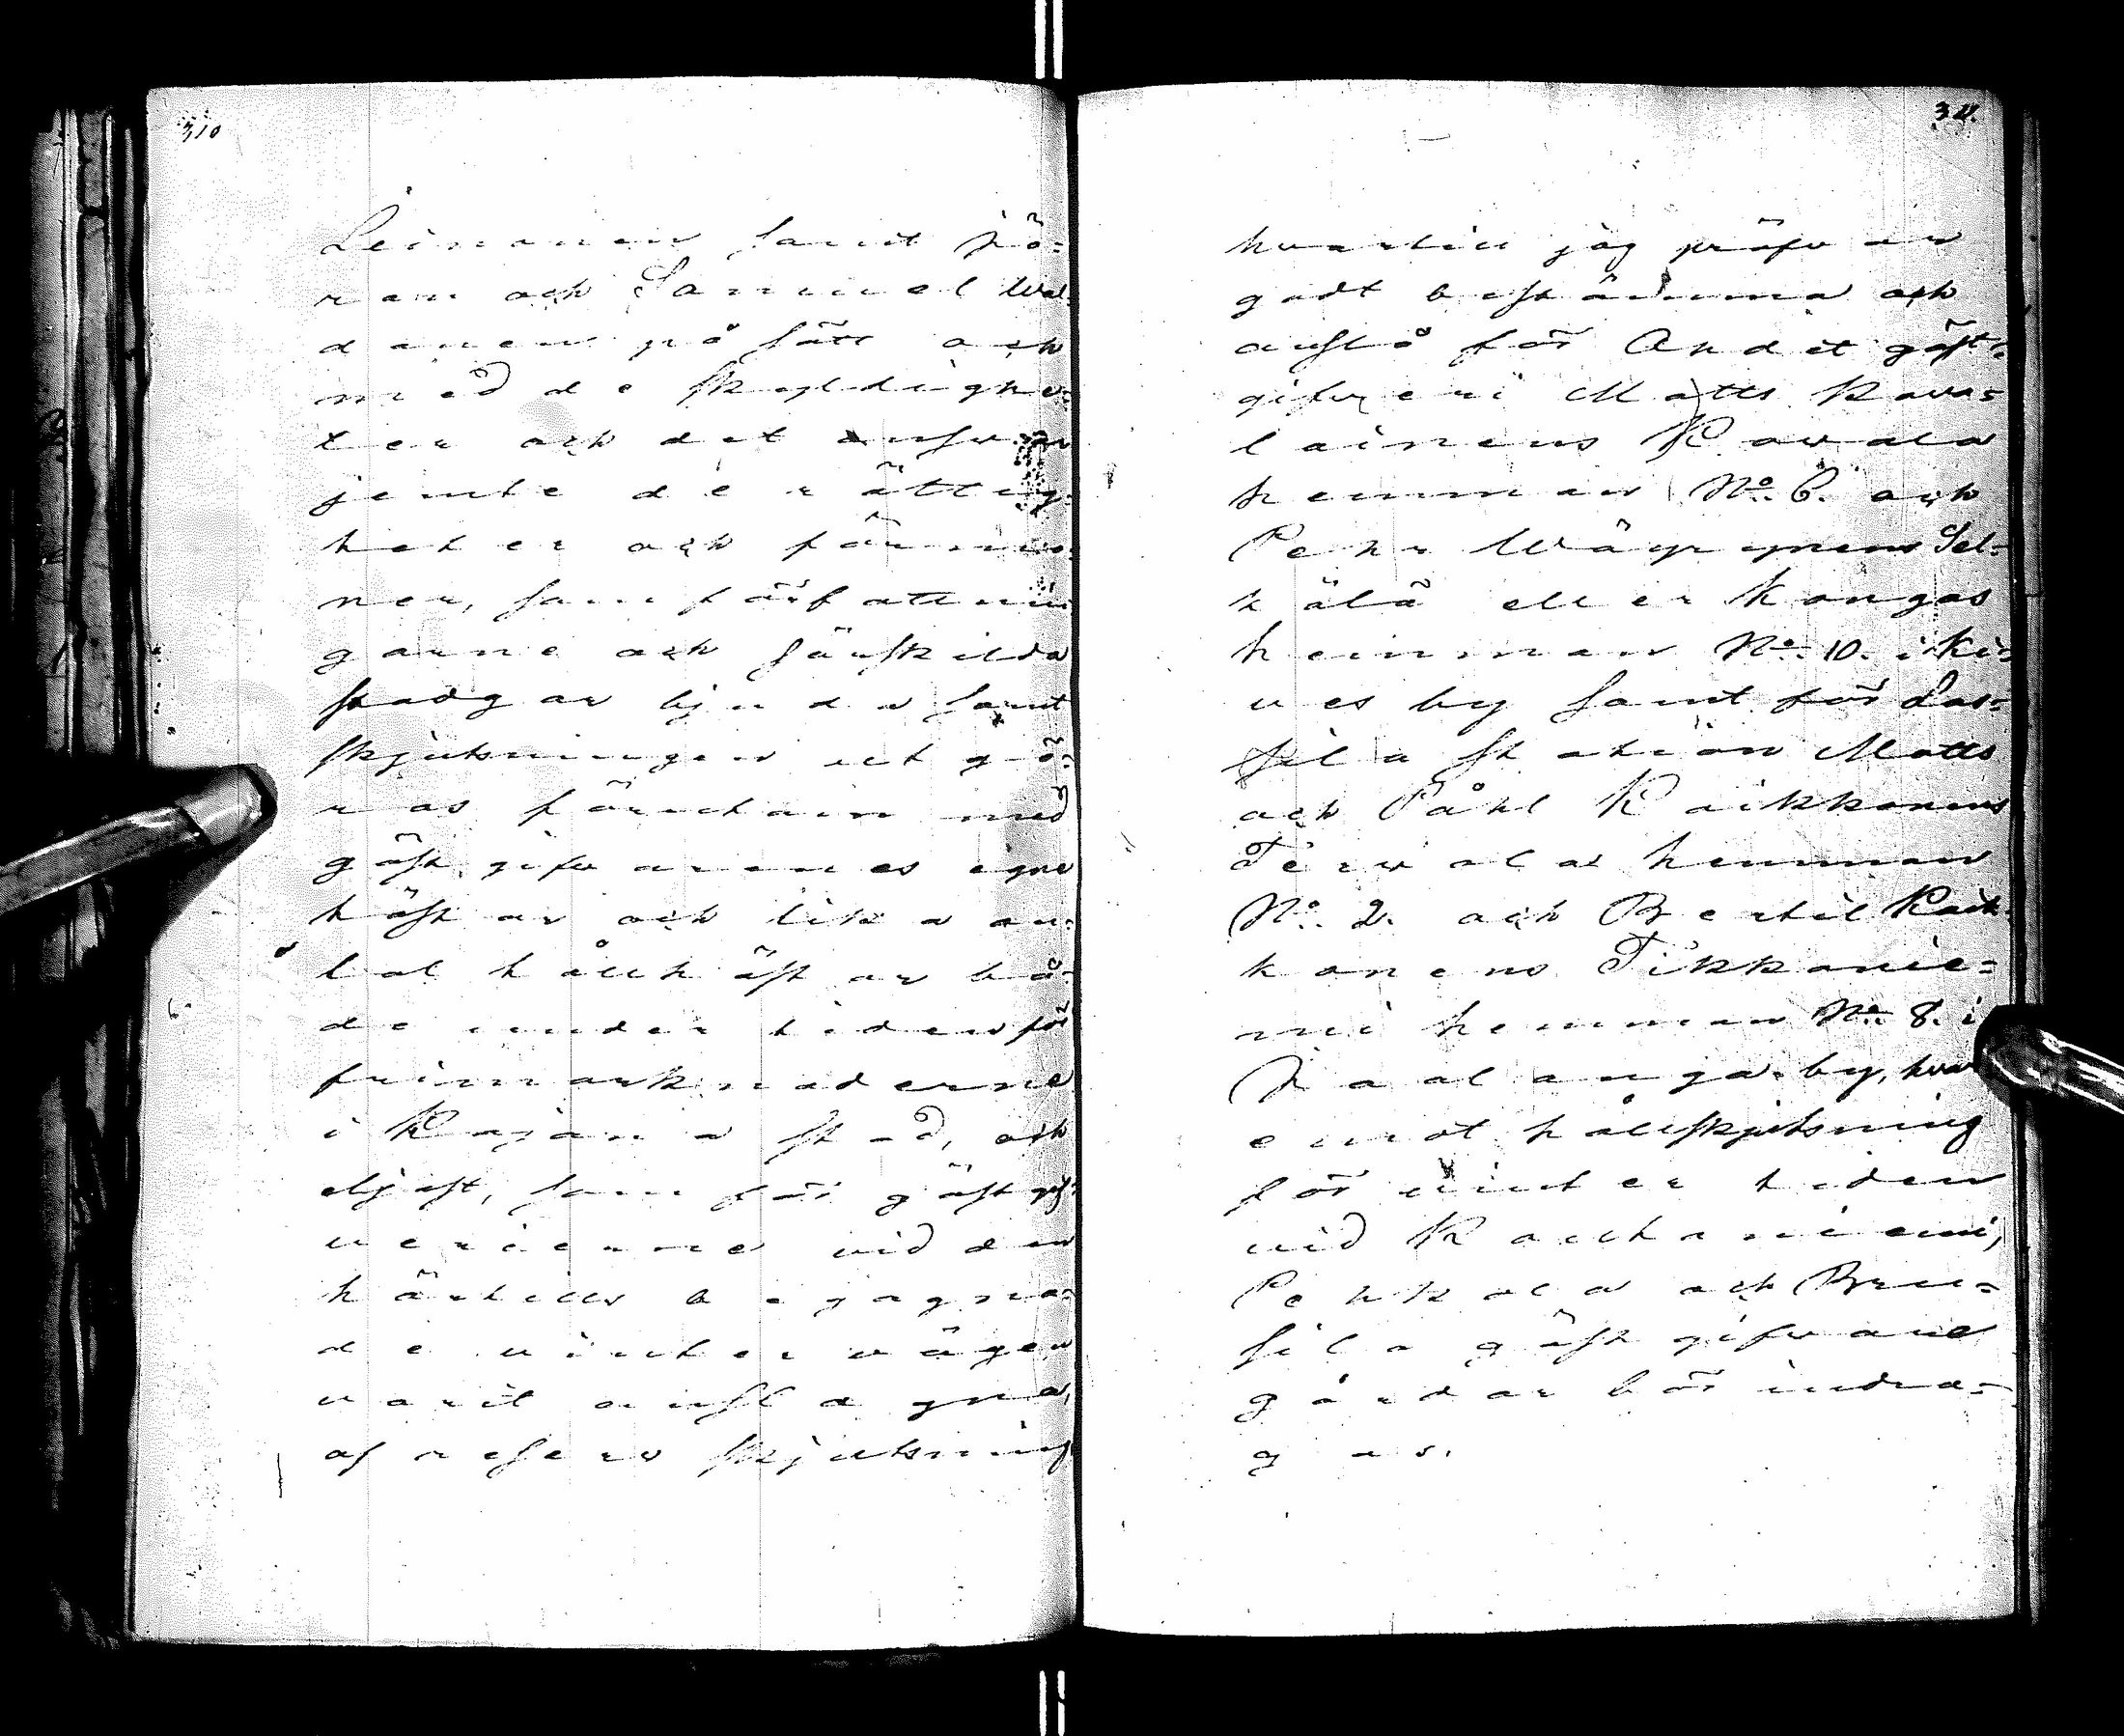 310
Leinonen samt Jö-
ran och Samuel Wä-
danen på sätt och
med de skyldighe-
ter och det answar
jemte de rättig-
heter och förmo-
ner, som författnin
garne och särskilda
stadgar bjuda samt
skjutsningen ut gö-
ras förutan med
gästgifvarenes egne
hästar och lika an-
tal hållhästar bå-
de under tiden för
frimarknaderne
i Kajana stad, och
eljest, som för gästgif
verierne vid den
härtills begagna-
de vintervägen
varit anslagna,
af reserv skjutsning
311.
hvartill jag pröfvar
godt bestämma och
anslå för Andet gäst-
gifveri Matts Kova-
lainens Kovala
hemman No. 6. och
Pehr Wäyrynens Sel-
kälä eller Kangas
hemman No. 10. i Ki-
ves by samt för Las-
sila station Matts
och Påhl Kaikkonens
Tervala hemman
No. 2. och Bertil Kaik-
konens Tikkanie-
mi hemman No. 8. i
Jaalanga by, hvar
emot hållskjutsning
för vinter tiden
vid Kauhaniemi,
Pehkola och Bru-
sila gästgifvare
gårdar bör indra-
gas.